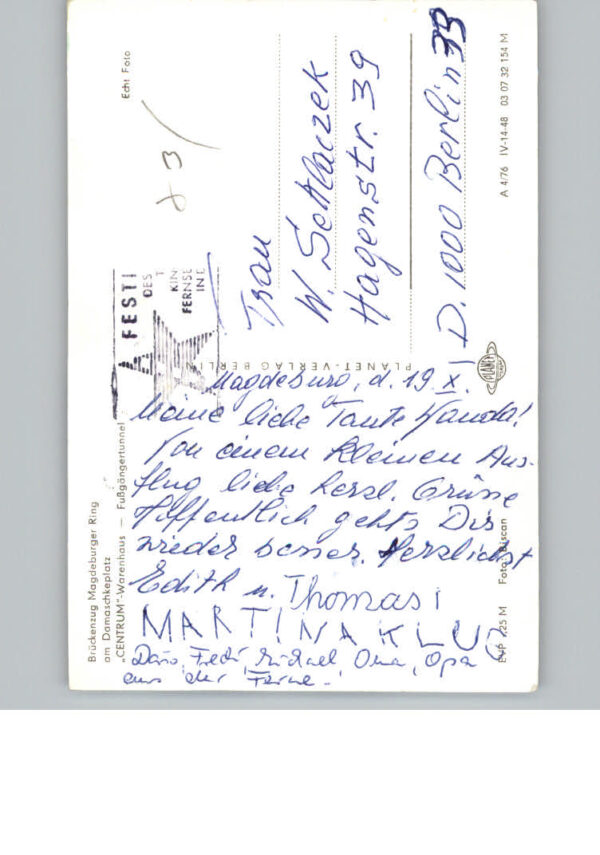 Brückenzug Magdeburger Ring
am Damaschkeplatz
„CENTRUM"-Warenhaus — Fußgängertunnel
Echt Foto
83
FESTI
DES
KIN
FERNSE
IN E
Magdeburg, d. 19. X.
Meine liebe Tante Wanda!
Von einem kleinen Aus-
flug liebe herzl. Grüsse
Hoffentlich gehts Dir
wieder besser. Herzlichst
Edith u. Thomas
MARTINA KLUG
Michael, Oma, Opa
aus der Ferne
PLANET-VERLAG BERLIN
PLANET
Frau
W. Settlaczek
Hagenstr. 39
D. 1000 Berlin 33
EVP
25 M
Foto
A 4/76 IV-14-48 03 07 32 154 M